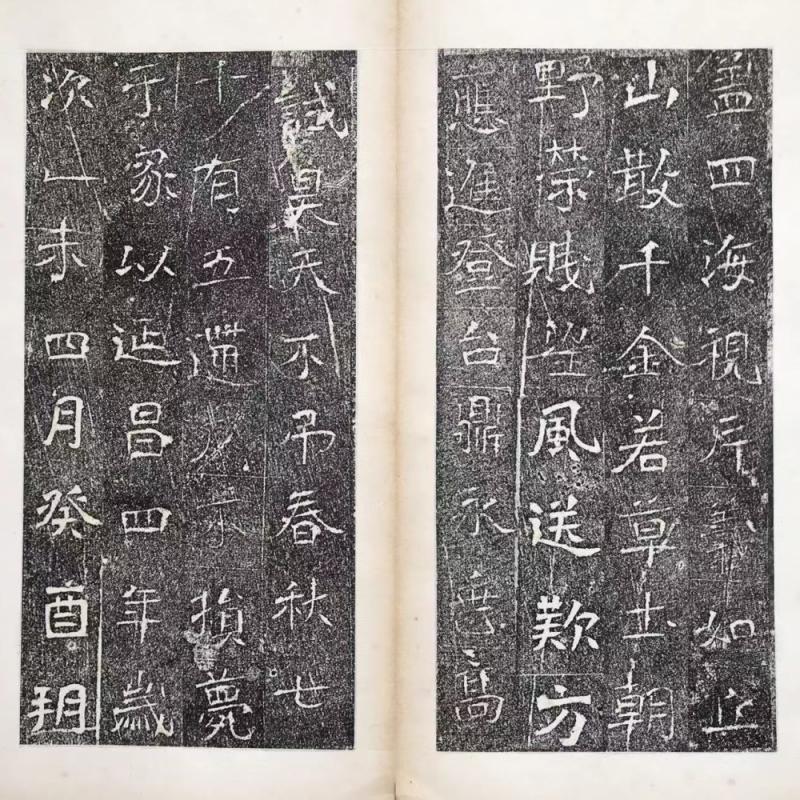 盖四海視片義如丘
山散千金若草土朝
野榮賤望風送歎方
應進登台鼎永垂高
誠昊天不弔春秋七
十有五遘疾不損薨
于家以延昌四年歲
次乙未四月癸酉朔